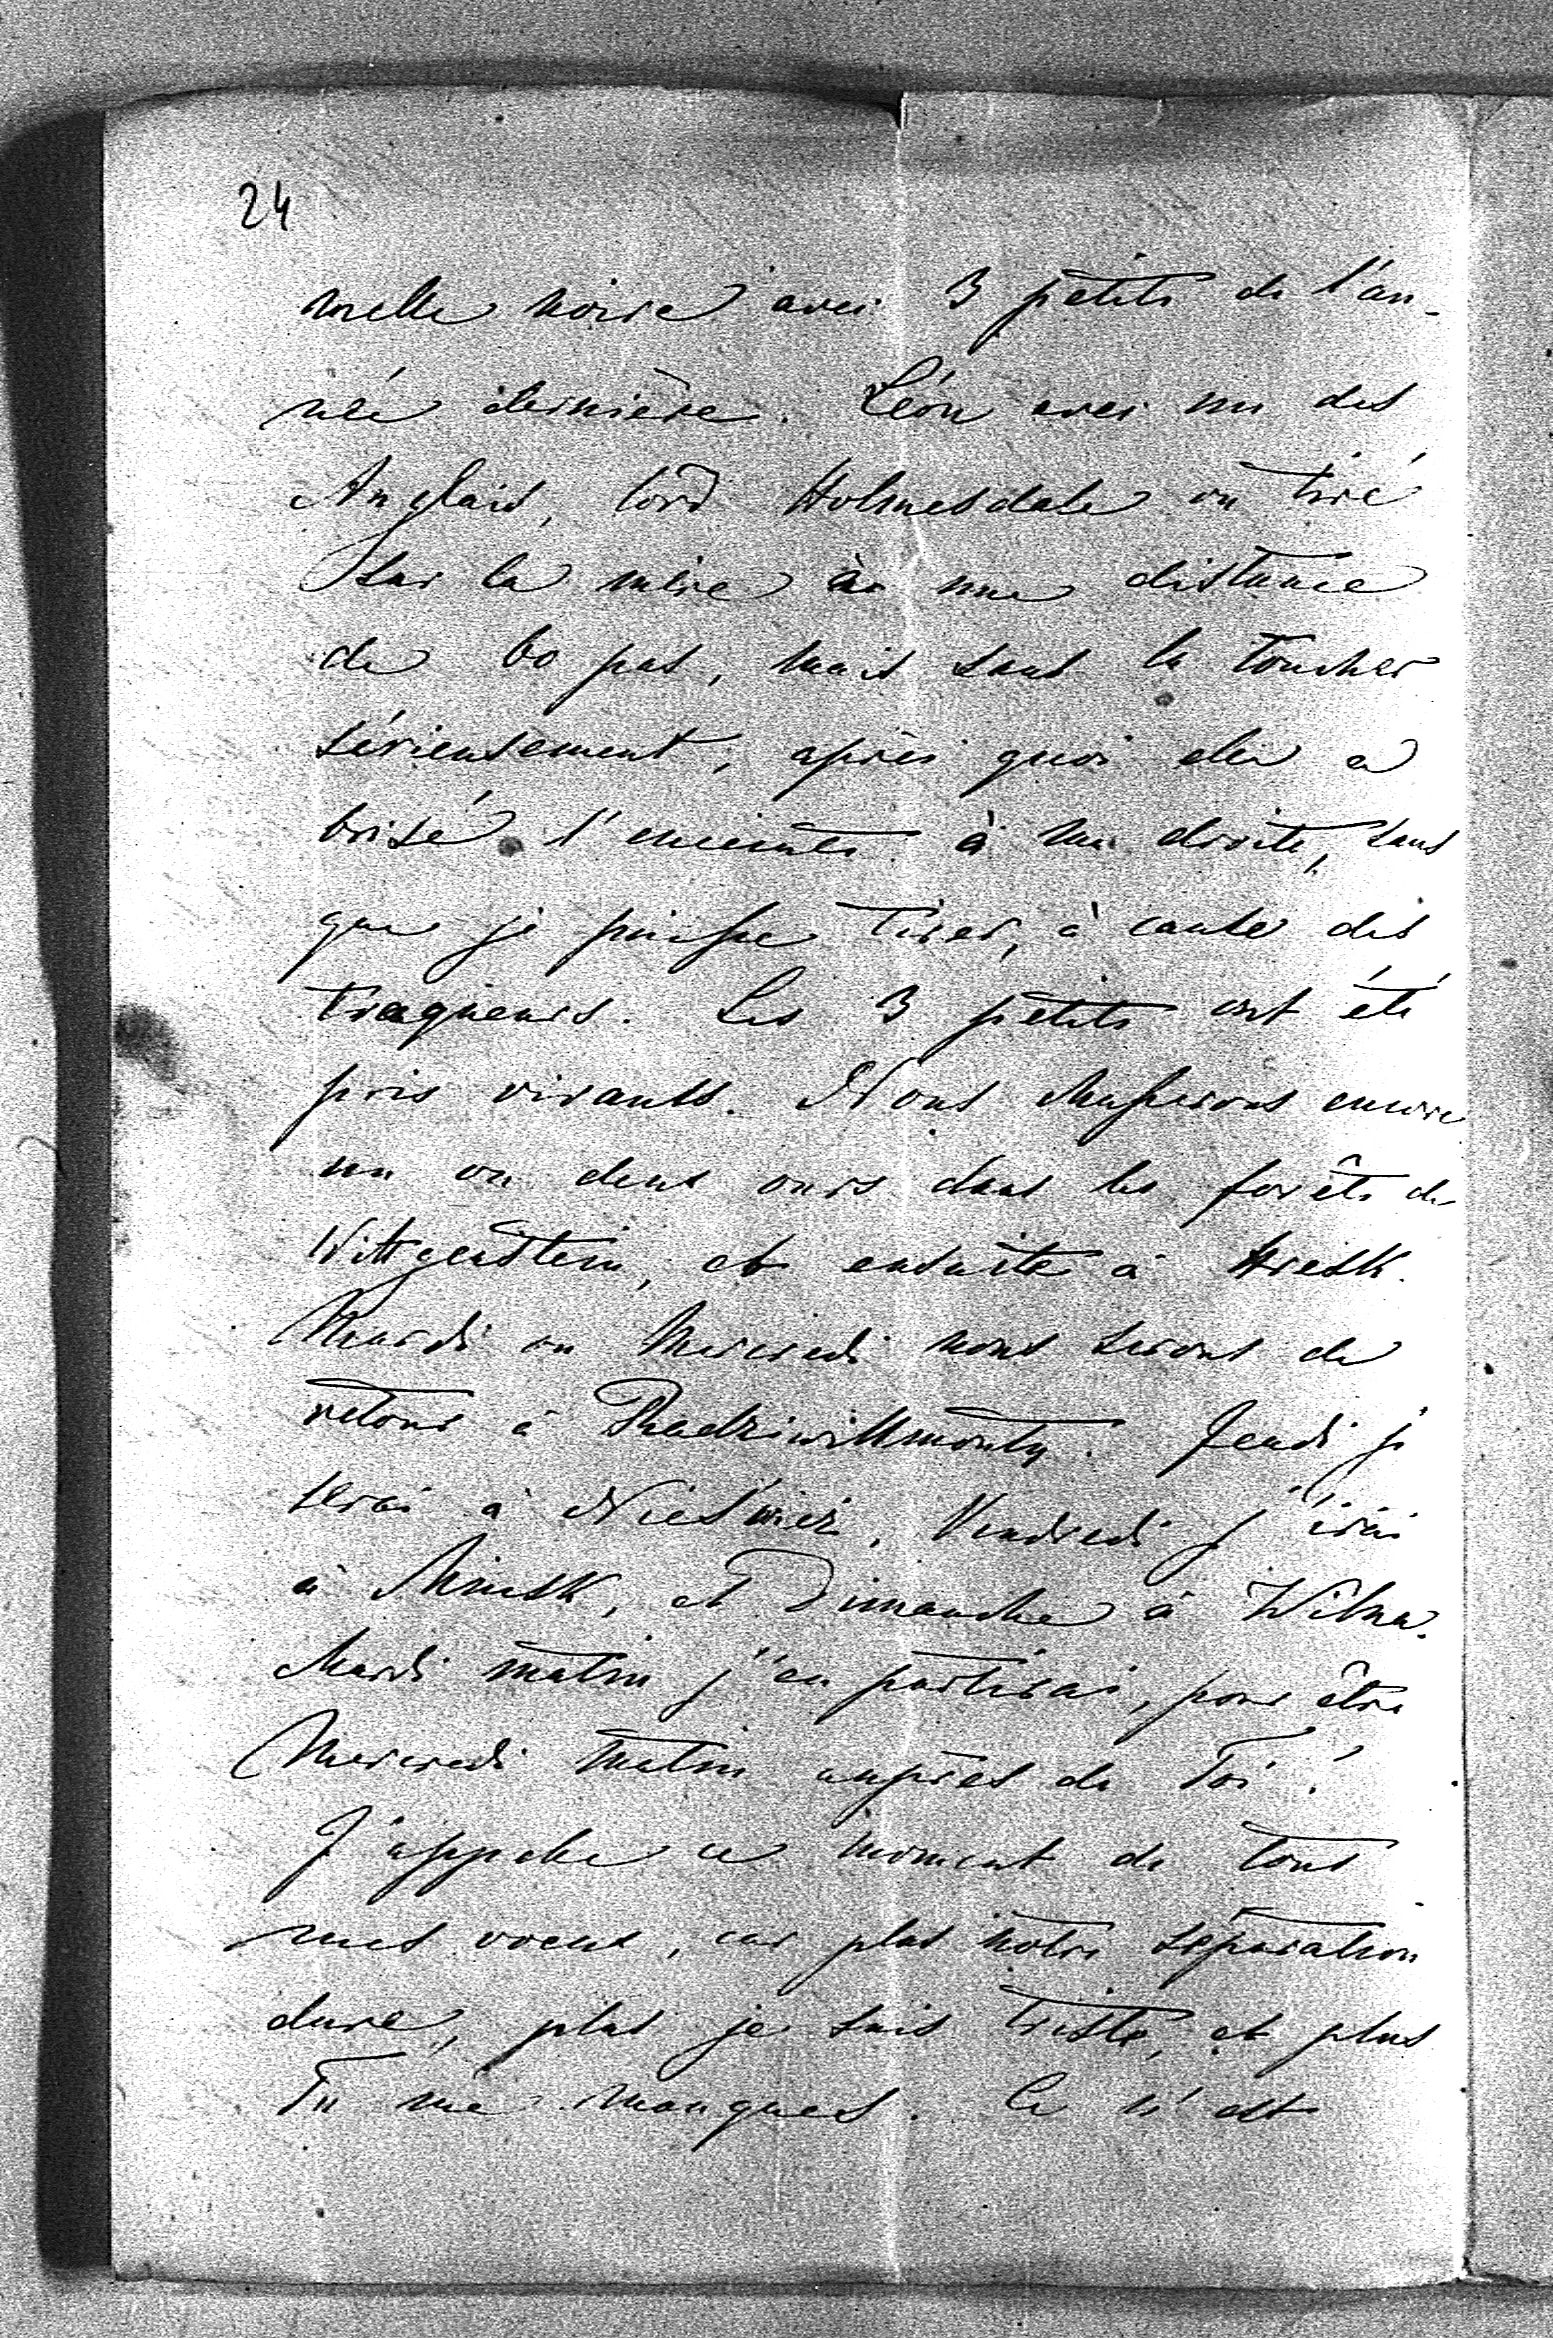 24
melle noire avec 3 petits de l'an-
née dernière. Léon avec un des
Anglais, lord Holmesdale on tiré
sur la mère à une distance
de 60 pas, mais sans la toucher
sérieusement, après quoi elle a
brisé l'enceinte à ma droite, sans
que je puisse tirer, à cause des
traqueurs. Les 3 petits ont été
pris vivants. Nous chasserons encore
un ou deux ours dans les forêts de
Wittgenstein, et ensuite à Hresk.
Mardi ou Mercredi nous serons de
retour à Radziwillmonty. Jeudi je
serai à Nieśwież. Vendredi j'irai
à Minsk, et Dimanche à Wilna.
Mardi matin j'en partirai, pour être
Mercredi matin auprès de Toi!
J'appelle ce moment de tous
mes voeux, car plus notre séparation
dure, plus je suis triste, et plus
Tu me manques. Ce n'est